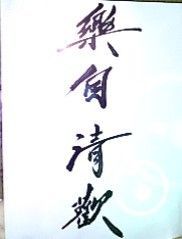 樂自清歡